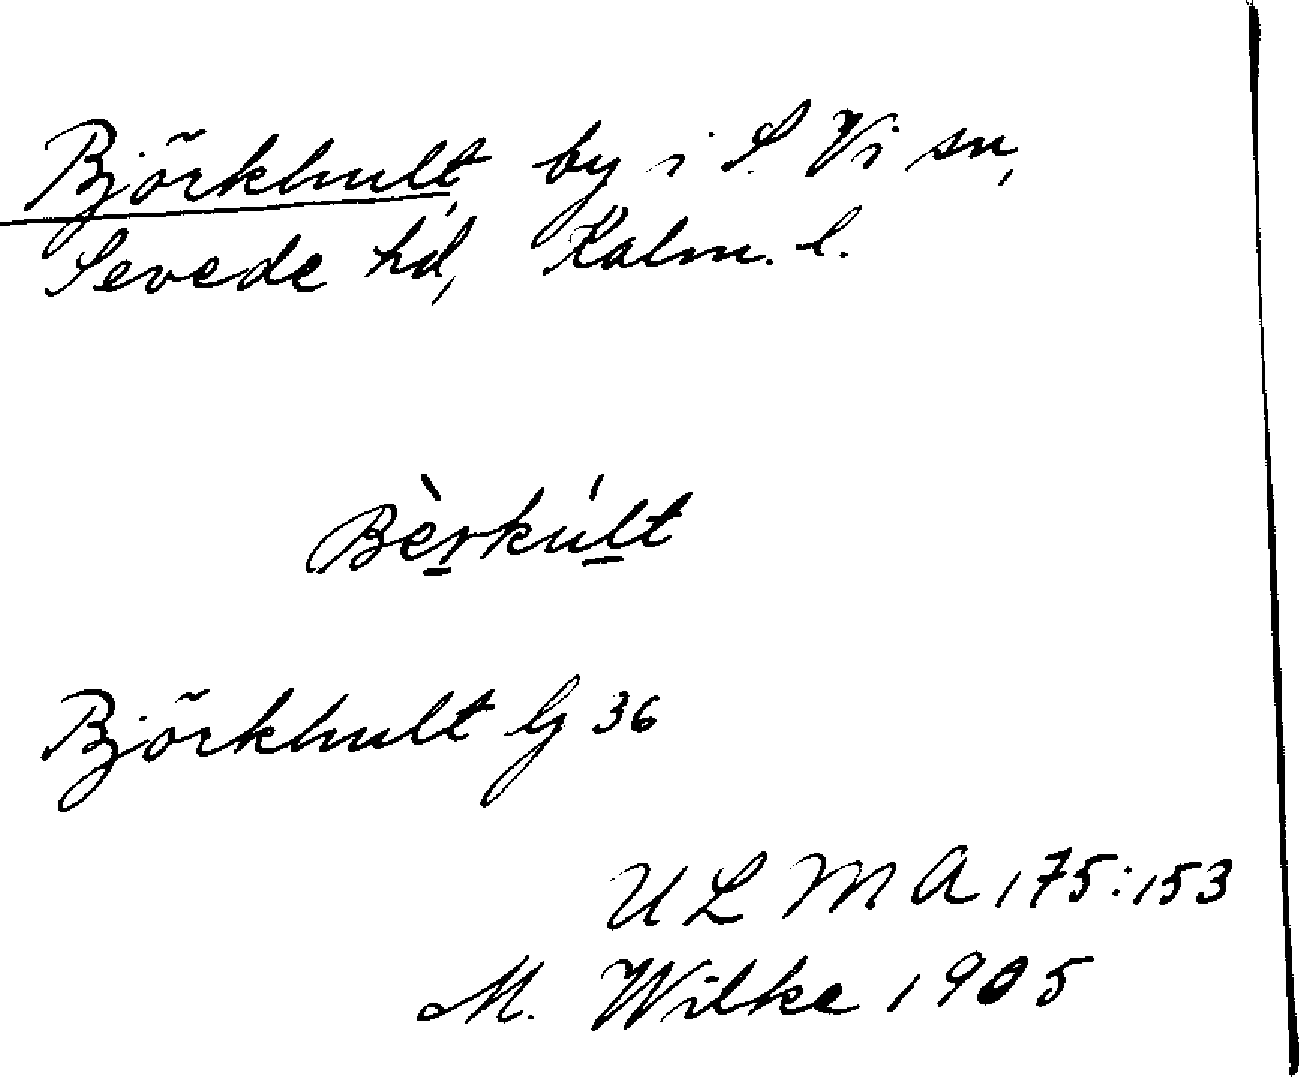 Björkhult by i S. Vi sn,
Sevede hd, Kalm. l.
Bèrkúlt
Björkhult Gj 36
ULMA 175:153
M. Wilke 1905